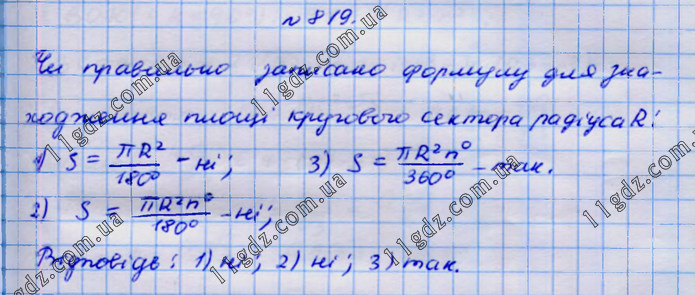 № 819.
Чи правильно записано формулу для зна-
ходження площі кругового сектора радіуса R:
1) S = πR²/180° - ні; 3) S = πR²n°/360° - так.
2) S = πR²n°/180° - ні;
Відповідь: 1) ні; 2) ні; 3) так.
11gdz.com.ua
11gdz.com.ua
11gdz.com.ua
11gdz.com.ua
11gdz.com.ua
11gdz.com.ua